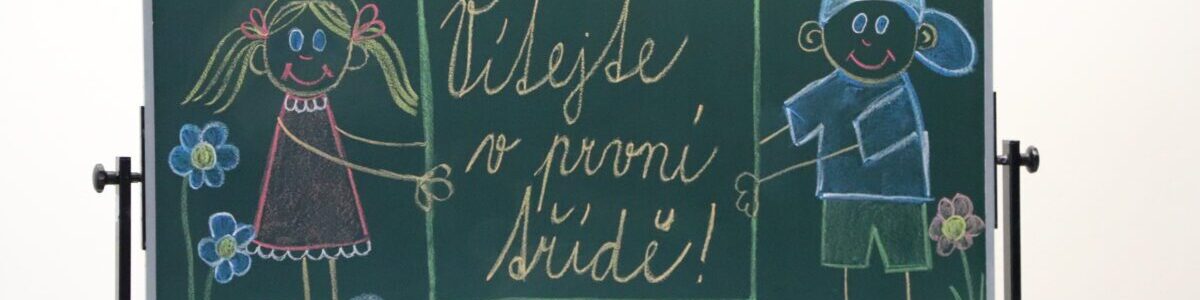 Vítejte
v první
třídě!